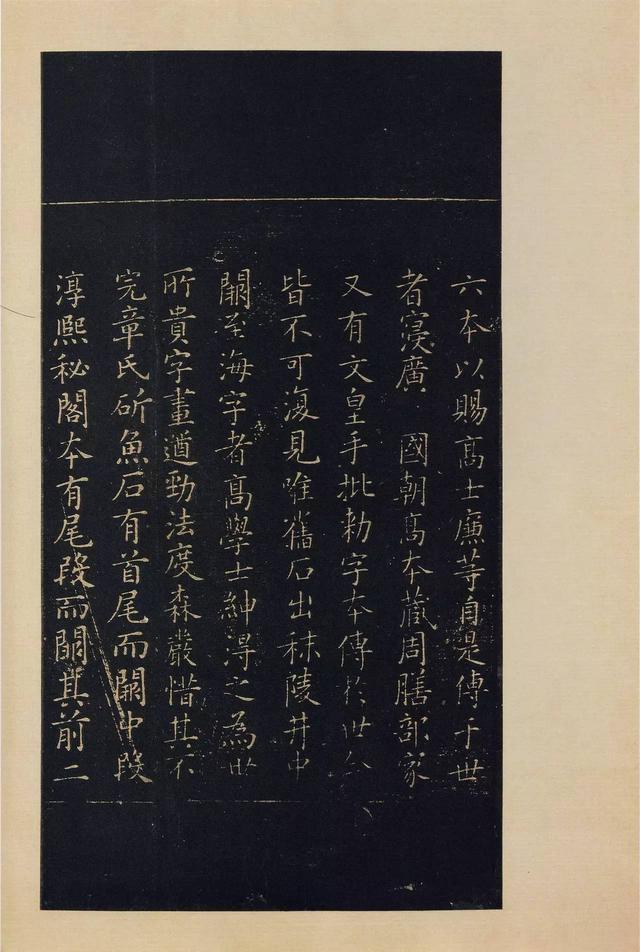 六本以賜高士廉等自是傳于世
者寖廣 國朝高本藏周膳部家
又有文皇手批勑字本傳於世今
皆不可復見唯舊石出秣陵井中
闕至海字者高學士紳得之為世
所貴字畫遒勁法度森嚴惜其不
完章氏斫魚石有首尾而闕中段
淳熙秘閣本有尾段而闕其前二